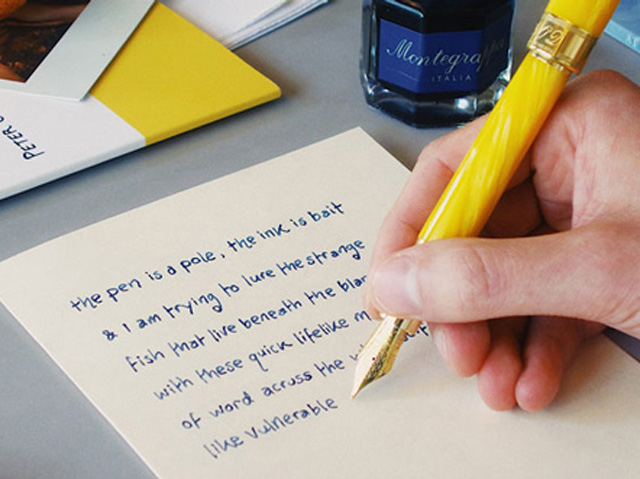 Montegrappa
ITALIA
PETER
the pen is a pole, the ink is bait
& I am trying to lure the strange
fish that live beneath the
with these quick lifelike
of word across the
like vulnerable